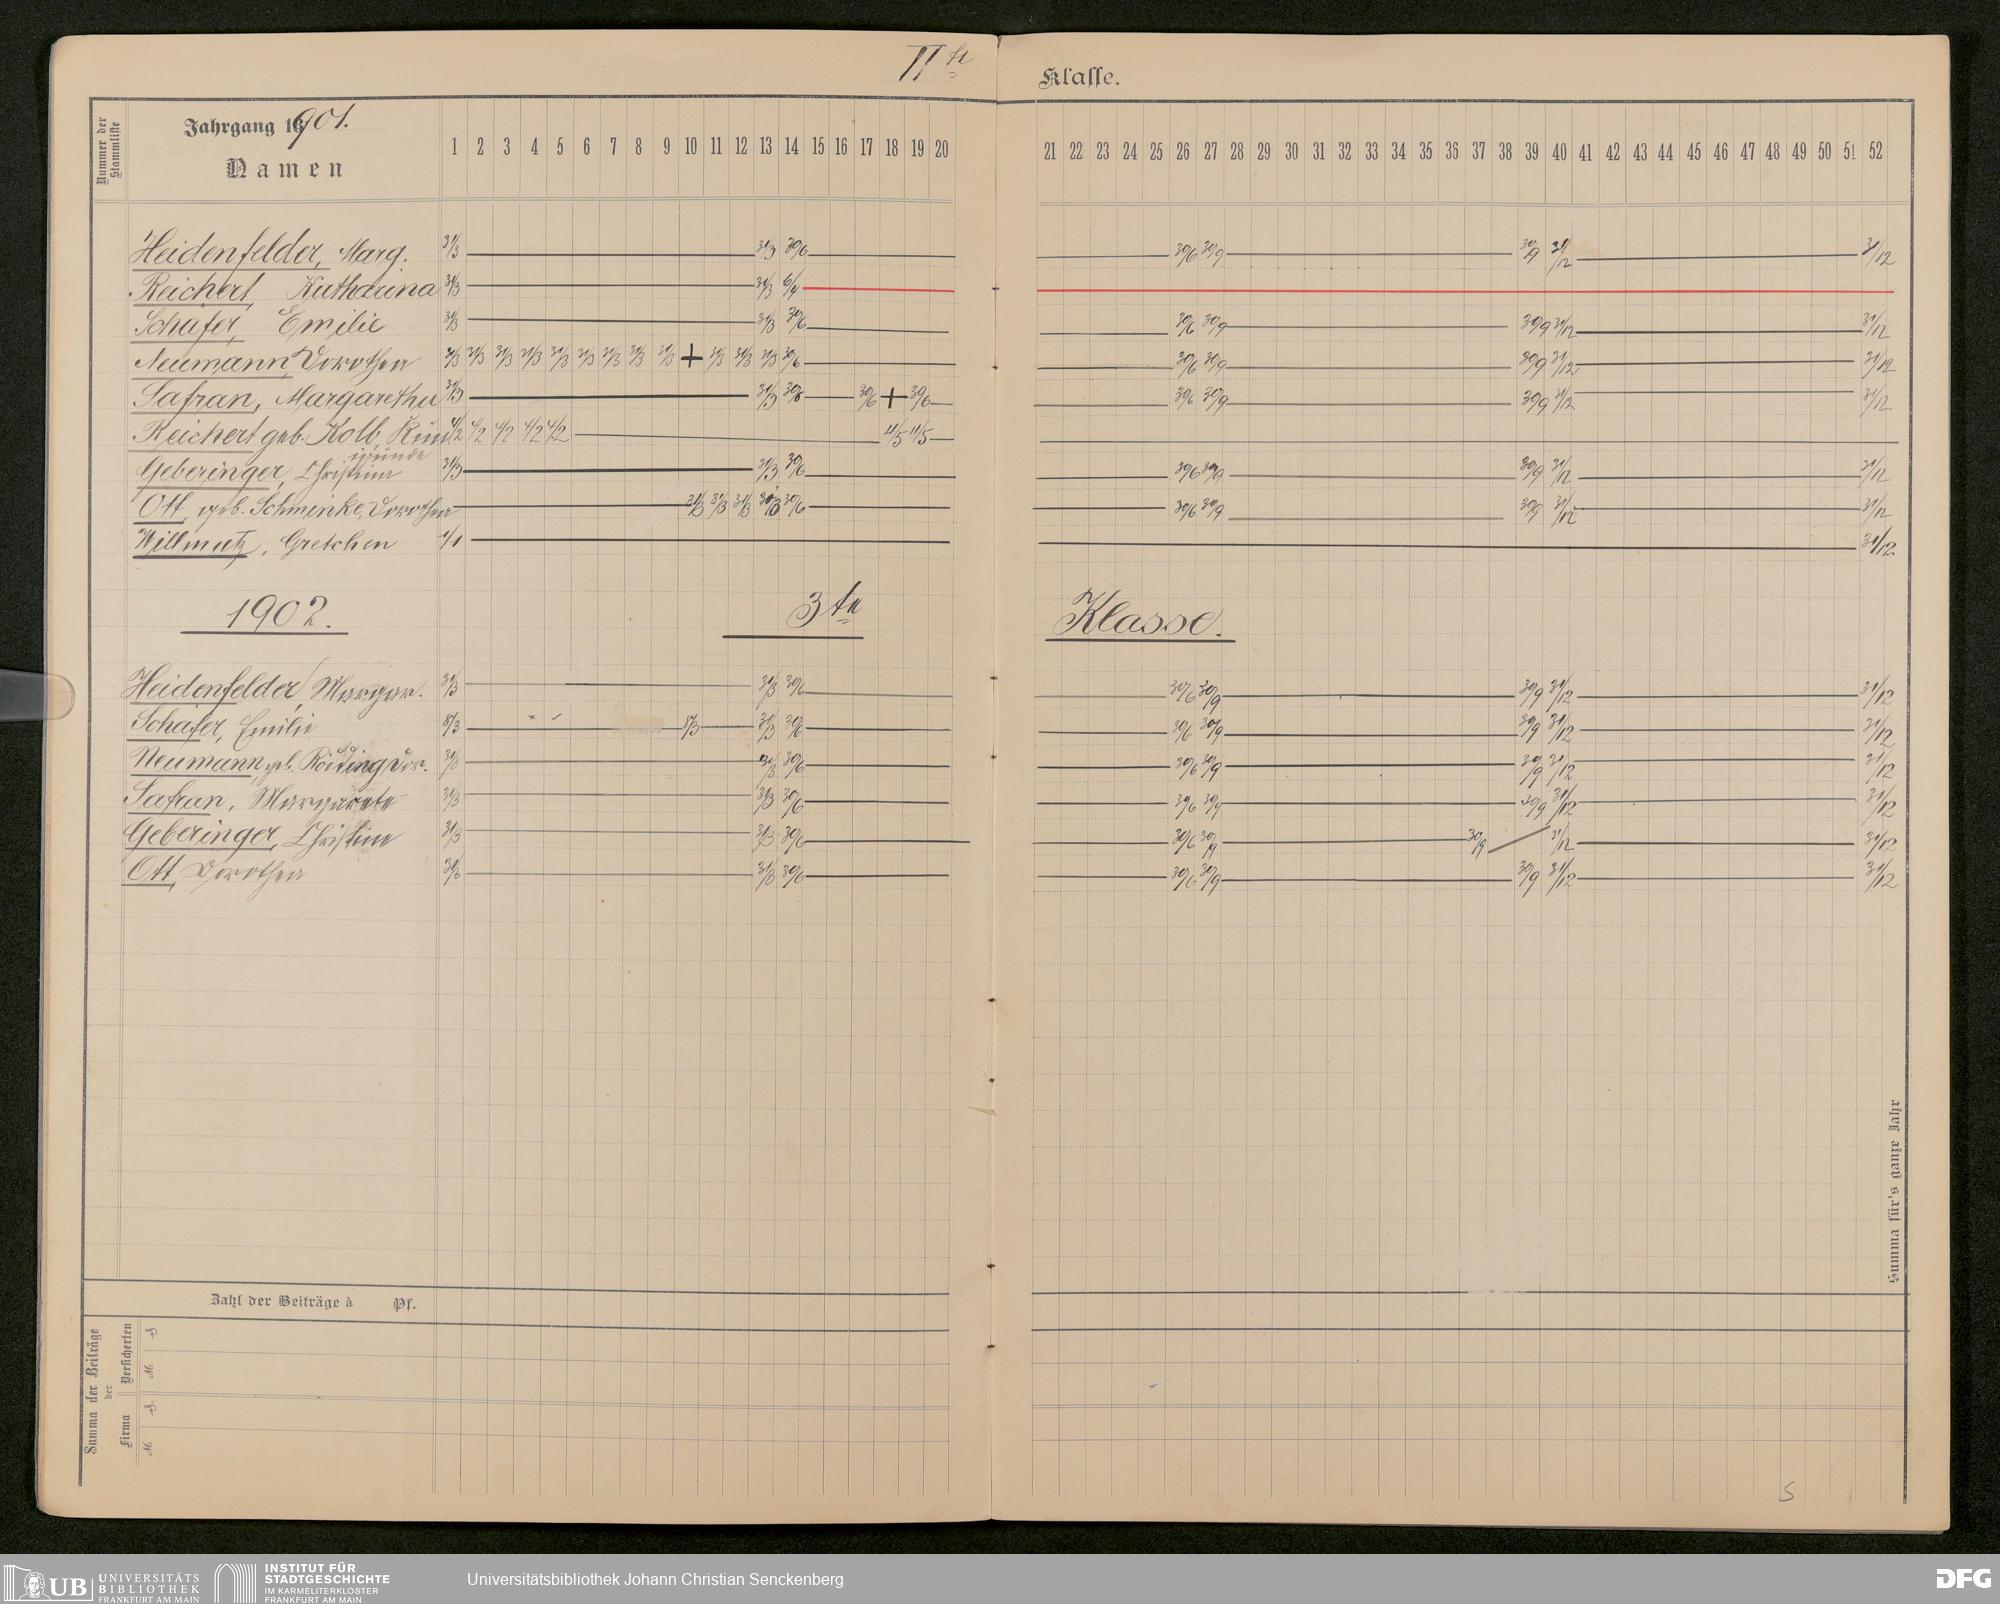 IIte Klasse.
Nummer der Stammliste
Jahrgang 1901.
Namen
1 2 3 4 5 6 7 8 9 10 11 12 13 14 15 16 17 18 19 20 21 22 23 24 25 26 27 28 29 30 31 32 33 34 35 36 37 38 39 40 41 42 43 44 45 46 47 48 49 50 51 52
Heidenfelder, Marg. 31/3 31/3 30/6 30/6 30/9 30/9 31/12 31/12
Reichert, Katharina 31/3 31/3 6/4
Schäfer, Emilie 31/3 31/3 30/6 30/6 30/9 30/9 31/12 31/12
Neumann, Dorothea 31/3 31/3 31/3 31/3 31/3 31/3 31/3 31/3 31/3 + 31/3 31/3 31/3 30/6 30/6 30/9 30/9 31/12 31/12
Safran, Margaretha 31/3 31/3 30/6 30/6 + 30/6 30/6 30/9 30/9 31/12 31/12
Reichert geb. Kolb, Kunigunde 4/2 4/2 4/2 4/2 4/2 11/5 11/5
Geberinger, Christine 31/3 31/3 30/6 30/6 30/9 30/9 31/12 31/12
Ott, geb. Schminke, Dorothea 31/3 31/3 31/3 31/3 30/6 30/6 30/9 30/9 31/12 31/12
Willmutz, Gretchen 1/1 31/12.
1902. 3te Klasse.
Heidenfelder, Margar. 31/3 31/3 30/6 30/6 30/9 30/9 31/12 31/12
Schäfer, Emilie 8/3 8/3 31/3 30/6 30/6 30/9 30/9 31/12 31/12
Neumann, geb. Röiding Dor. 31/3 31/3 30/6 30/6 30/9 30/9 31/12 31/12
Safran, Margarete 31/3 31/3 30/6 30/6 30/9 30/9 31/12 31/12
Geberinger, Christine 31/3 31/3 30/6 30/6 30/9 30/9 31/12 31/12
Ott, Dorothea 31/3 31/3 30/6 30/6 30/9 30/9 31/12 31/12
Summa für's ganze Jahr
Zahl der Beiträge à Pf.
Summa der Beiträge
der
Firma Versicherten
M. M.
5
UB UNIVERSITÄTS
BIBLIOTHEK
FRANKFURT AM MAIN
INSTITUT FÜR
STADTGESCHICHTE
IM KARMELITERKLOSTER
FRANKFURT AM MAIN
Universitätsbibliothek Johann Christian Senckenberg
DFG